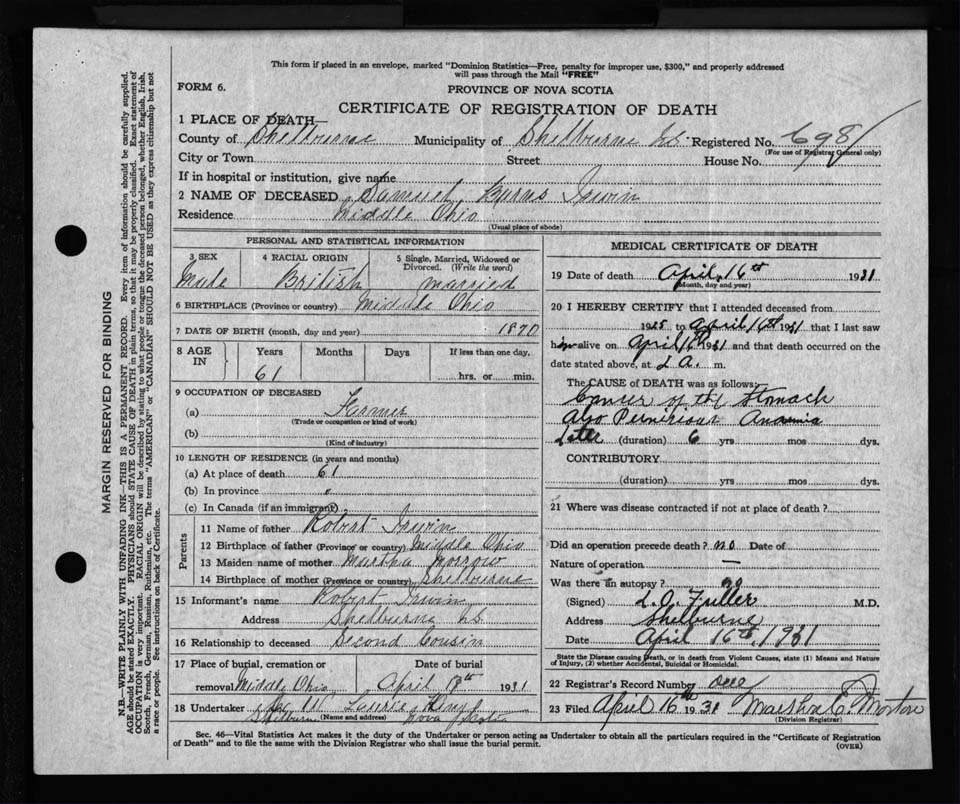 This form if placed in an envelope, marked "Dominion Statistics—Free, penalty for improper use, $300," and properly addressed
will pass through the Mail "FREE"
FORM 6.
PROVINCE OF NOVA SCOTIA
CERTIFICATE OF REGISTRATION OF DEATH
1 PLACE OF DEATH—
County of Shelburne Municipality of Shelburne NS. Registered No. 698
(For use of Registrar General only)
City or Town Street House No.
If in hospital or institution, give name
2 NAME OF DECEASED Samuel Burns Irwin
Residence Middle Ohio
(Usual place of abode)
PERSONAL AND STATISTICAL INFORMATION
3 SEX 4 RACIAL ORIGIN 5 Single, Married, Widowed or
Divorced. (Write the word)
Male British married
6 BIRTHPLACE (Province or country) Middle Ohio
7 DATE OF BIRTH (month, day and year) 1870
8 AGE IN Years Months Days If less than one day,
61 hrs. or min.
9 OCCUPATION OF DECEASED
(a) Farmer
(Trade or occupation or kind of work)
(b)
(Kind of industry)
10 LENGTH OF RESIDENCE (in years and months)
(a) At place of death 61
(b) In province "
(c) In Canada (if an immigrant)
Parents
11 Name of father Robert Irwin
12 Birthplace of father (Province or country) Middle Ohio
13 Maiden name of mother Martha Morrow
14 Birthplace of mother (Province or country) Shelburne
15 Informant's name Robert Irwin
Address Shelburne NS.
16 Relationship to deceased Second Cousin
17 Place of burial, cremation or Date of burial
removal Middle Ohio April 1931
18 Undertaker Laurie
Shelburn (Name and address) Nova Scotia
MEDICAL CERTIFICATE OF DEATH
19 Date of death April 16th 1931
(Month, day and year)
20 I HEREBY CERTIFY that I attended deceased from
1925 to April 16th 1931 that I last saw
him alive on April 16 1931 and that death occurred on the
date stated above, at A. m.
The CAUSE of DEATH was as follows:
Cancer of the Stomach
also Pernicious Anaemia
Later (duration) 6 yrs mos dys.
CONTRIBUTORY
(duration) yrs mos dys.
21 Where was disease contracted if not at place of death?
Did an operation precede death? no Date of
Nature of operation —
Was there an autopsy? no
(Signed) L.O. Fuller M.D.
Address Shelburne
Date April 16th, 1931
State the Disease causing Death, or in death from Violent Causes, state (1) Means and Nature
of Injury, (2) whether Accidental, Suicidal or Homicidal.
22 Registrar's Record Number one
23 Filed April 16th 1931 Marshall E. Morton
(Division Registrar)
Sec. 46—Vital Statistics Act makes it the duty of the Undertaker or person acting as Undertaker to obtain all the particulars required in the "Certificate of Registration
of Death" and to file the same with the Division Registrar who shall issue the burial permit.
(OVER)
MARGIN RESERVED FOR BINDING
N.B.—WRITE PLAINLY WITH UNFADING INK—THIS IS A PERMANENT RECORD. Every item of information should be carefully supplied.
AGE should be stated EXACTLY. PHYSICIANS should STATE CAUSE OF DEATH in plain terms, so that it may be properly classified. Exact statement of
OCCUPATION is very important. RACIAL ORIGIN will be described by stating to what people or tongue the deceased person belonged, whether English, Irish,
Scotch, French, German, Russian, Ruthenian, etc. The terms "AMERICAN" or "CANADIAN" SHOULD NOT BE USED as they express citizenship but not
a race or people. See instructions on back of Certificate.